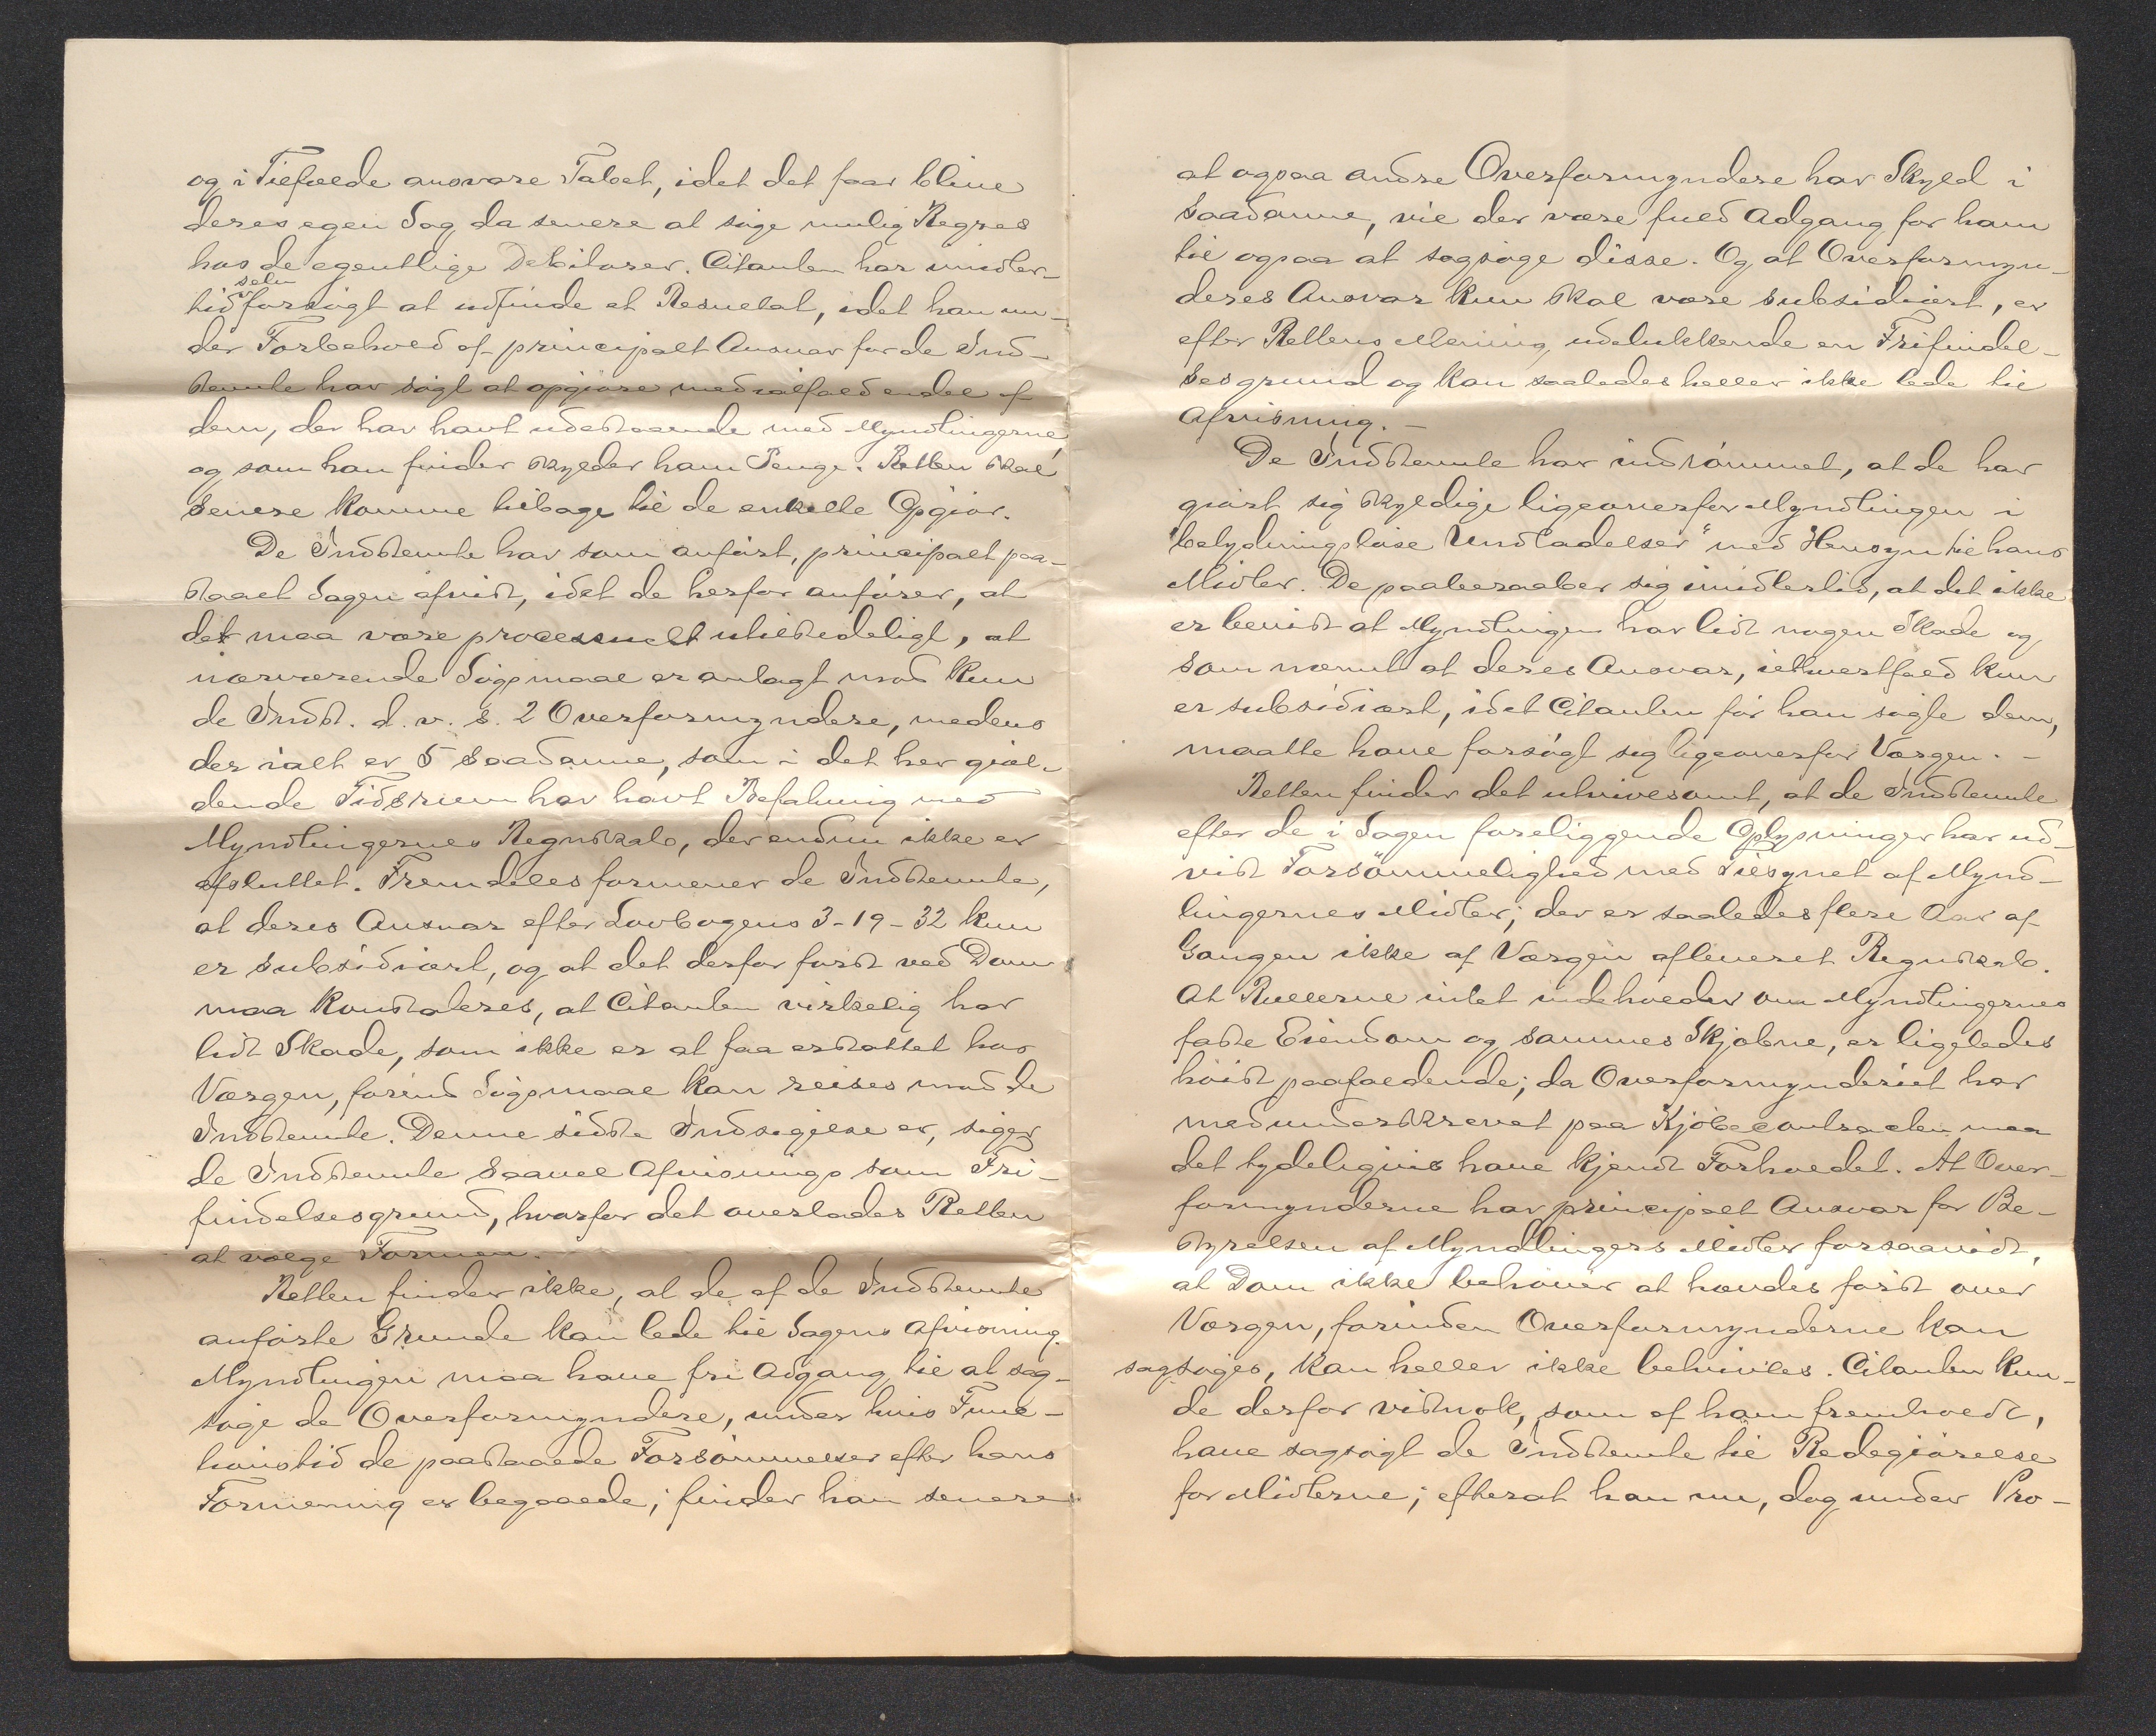 og i Tilfælde ansvare Tabet, idet det faar blive
deres egen Sag da senere at søge mulig Regres
hos de egentlige Debitorer. Citanten har imidler-
selv
tid forsøgt at udfinde et Resultat, idet han un-
der Forbehold af principalt Ansvar for de Ind-
stevnte har søgt at opgjøre med ialfald endel af
dem, der har havt udestaaende med Myndlingerne,
og som han finder skylder ham Penge. Retten skal
senere komme tilbage til de enkelte Opgjør.
De Indstevnte har som anført, principalt paa-
staaet Sagen afvist, idet de herfor anfører, at
det maa være processuelt utilstedeligt, at
nærværende Søgsmaal er anlagt mod kun
de Indst. d. v. s. 2 Overformyndere, medens
der ialt er 5 saadanne, som i det her gjæl-
dende Tidsrum har havt Befatning med
Myndlingernes Regnskab, der endnu ikke er
afsluttet. Fremdeles formener de Indstevnte,
at deres Ansvar efter Lovbogens 3-19-32 kun
er subsidiært, og at det derfor først ved Dom
maa konstateres, at Citanten virkelig har
lidt Skade, som ikke er at faa erstattet hos
Værgen, førend Søgsmaal kan reises mod de
Indstevnte. Denne sidste Indsigelse er, siger
de Indstevnte saavel Afvisnings som Fri-
findelsesgrund, hvorfor det overlades Retten
at vælge Formen.
Retten finder ikke, at de af de Indstevnte
anførte Grunde kan lede til Sagens Afvisning.
Myndlingen maa have fri Adgang til at sag-
søge de Overformyndere, under hvis Funk-
tionstid de paastaaede Forsømmelser efter hans
Formening er begaaede; finder han senere
at ogsaa andre Overformyndere har Skyld i
saadanne, vil der være fuld Adgang for ham
til ogsaa at sagsøge disse. Og at Overformyn-
deres Ansvar kun skal være subsidiært, er
efter Rettens Mening, udelukkende en Frifindel-
sesgrund og kan saaledes heller ikke lede til
Afvisning. -
De Indstevnte har indrømmet, at de har
gjort sig skyldige ligeoverfor Myndlingen i
"betydningsløse Undladelser" med Hensyn til hans
Midler. De paaberaaber sig imidlertid, at det ikke
er bevist at Myndlingen har lidt nogen Skade og
som nævnt at deres Ansvar, ialtfald kun
er subsidiært, idet Citanten før han søgte dem,
maatte have forsøgt sig ligeoverfor Værgen. -
Retten finder det utvivlsomt, at de Indstevnte
efter de i Sagen foreliggende Oplysninger har ud-
vist Forsømmelighed med Tilsynet af Mynd-
lingernes Midler; der er saaledes flere Aar af
Gangen ikke af Værgen afleveret Regnskab.
At Rullerne intet indeholder om Myndlingernes
faste Eiendom og sammes Skjæbne, er ligeledes
høist paafaldende; da Overformynderiet har
medunderskrevet paa Kjøbecontracten maa
det tydeligvis have kjendt Forholdet. At Over-
formynderne har principalt Ansvar for Be-
styrelsen af Myndlingers Midler forsaavidt,
at Dom ikke behøver at hændes først over
Værgen, forinden Overformynderne kan
sagsøges, kan heller ikke betvivles. Citanten kun-
de derfor vistnok, som af ham fremholdt,
have sagsøgt de Indstevnte til Redegjørelse
for Midlerne; efterat han nu, dog under Pro-